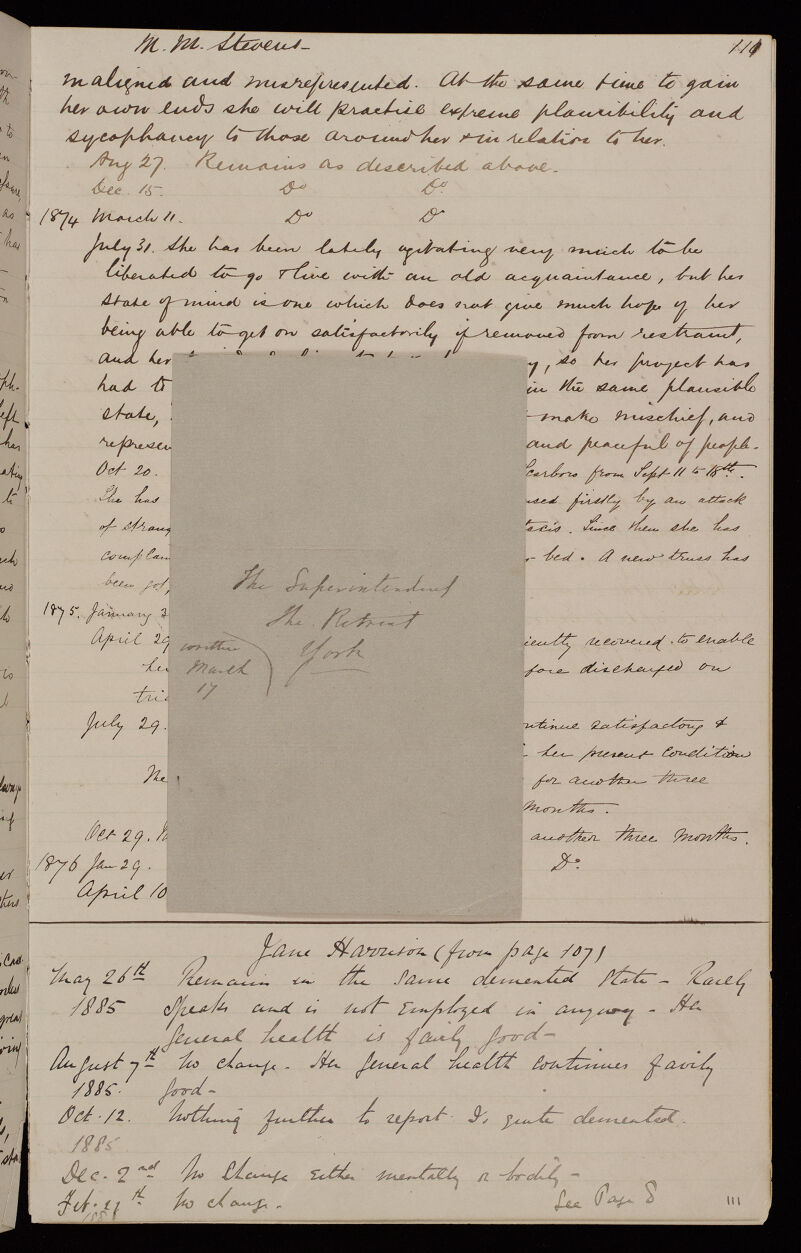 M. M. Stevens - 111
maligned and misrepresented. At the same time to gain
her own ends she will practise extreme plausibility and
sycophancy to those around her & in relation to her.
Aug 27. Remains as described above.
Dec. 15. Do Do
1874 March 11. Do Do
July 31. She has been lately agitating very much to be
liberated to go & live with an old acquaintance, but her
state of mind is one which does not give much hope of her
being able to get on satisfactorily if removed from restraint,
and her so her project has
had to in the same plausible
state, make mischief, and
represen and peaceful of people.
Oct 20. Scarboro from Sept 11 to 18th.
She has used firstly by an attack
of strang Since then she has
complain bed. A new truss has
been got,
1875. January
April 29 iently recovered to enable
her fore discharged on
tri
July 29. ntinue satisfactory &
her present condition
The for another three
months.
Oct 29. another three months.
1876 Jan 29. Do
April 10
The Superintendent
The Retreat
York
written
March
17
Jane Harrison (from page 107)
May 26th Remains in the same demented state - Rarely
1885 speaks and is not employed in anyway - Her
general health is fairly good -
August 7th No change. Her general health continues fairly
1885. good -
Oct. 12. Nothing further to report. Is quite demented.
1885
Dec. 2nd No change either mentally or bodily -
Feb. th No change. See Page 8 111